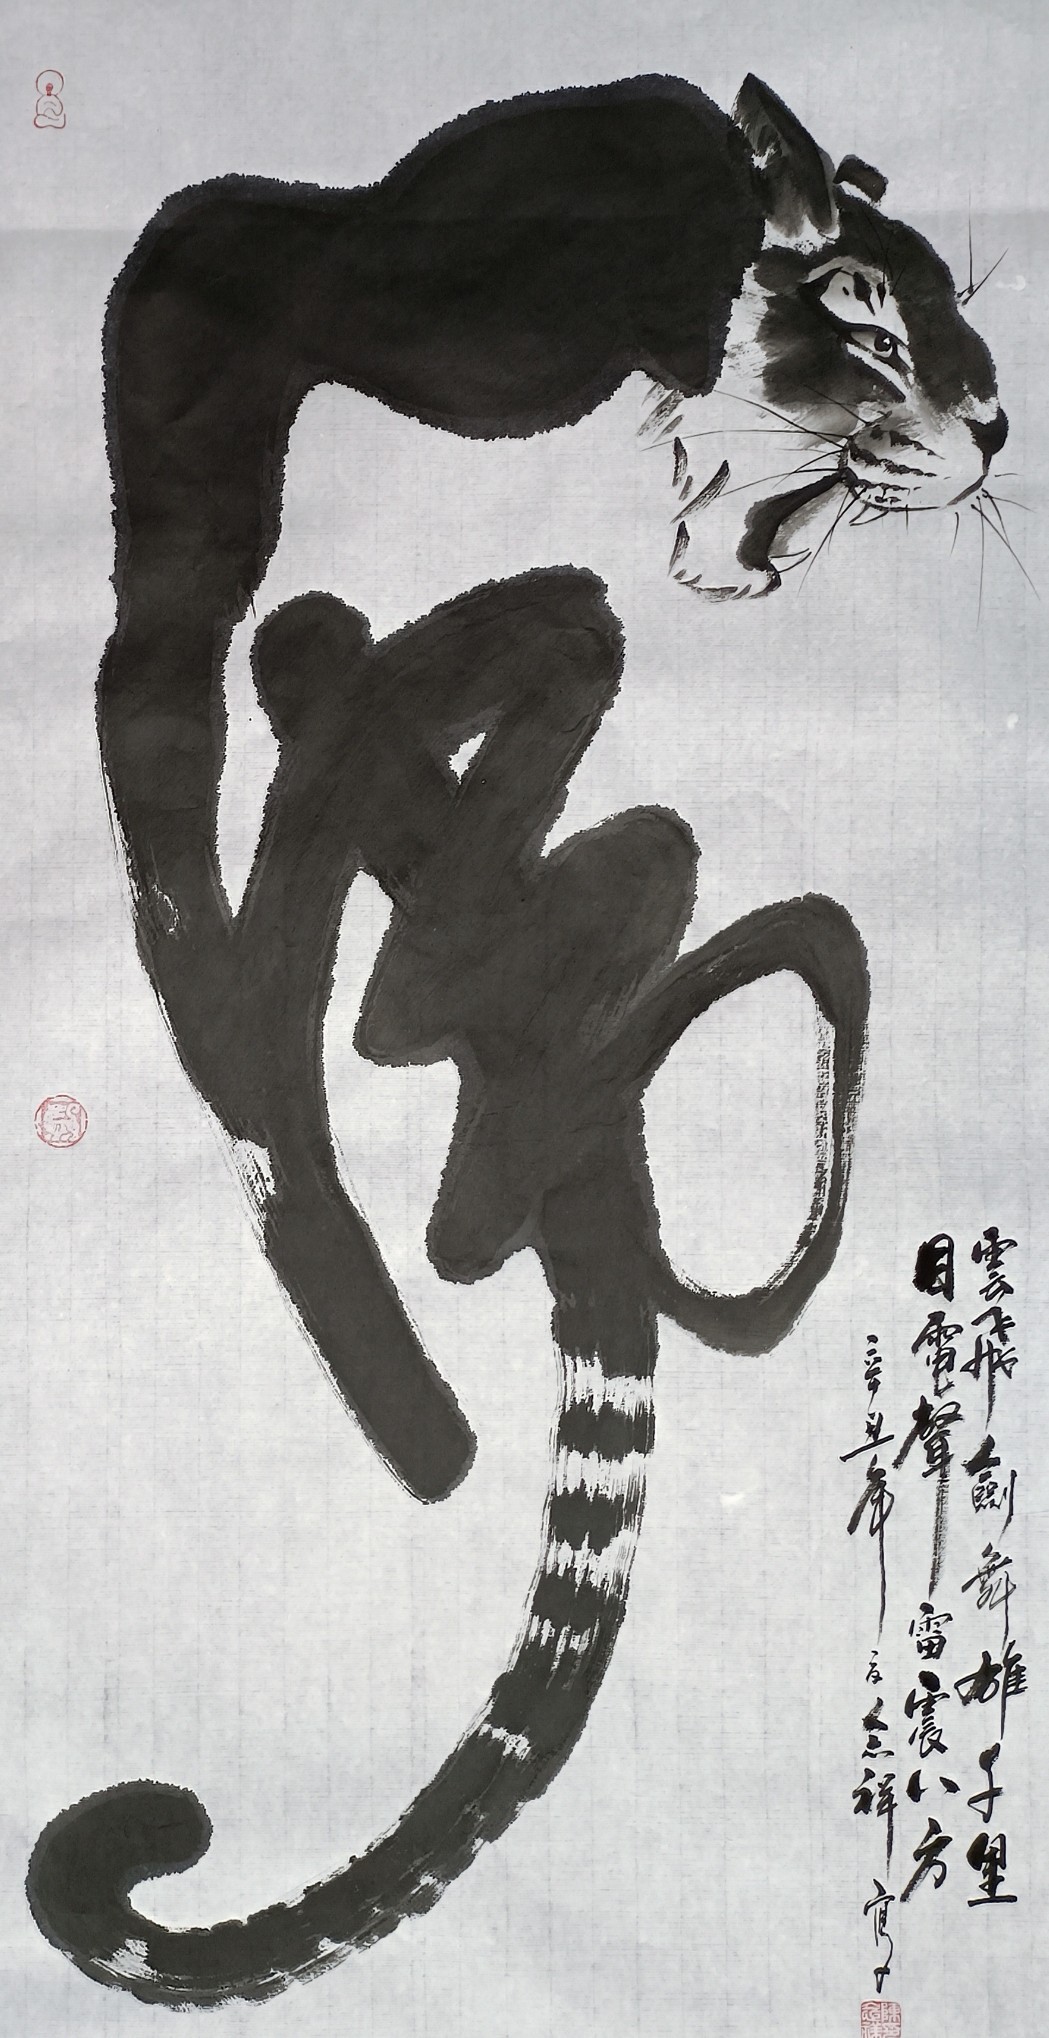 虎
雲飛劍舞雄千里
目電聲雷震八方
辛丑年念祥寫